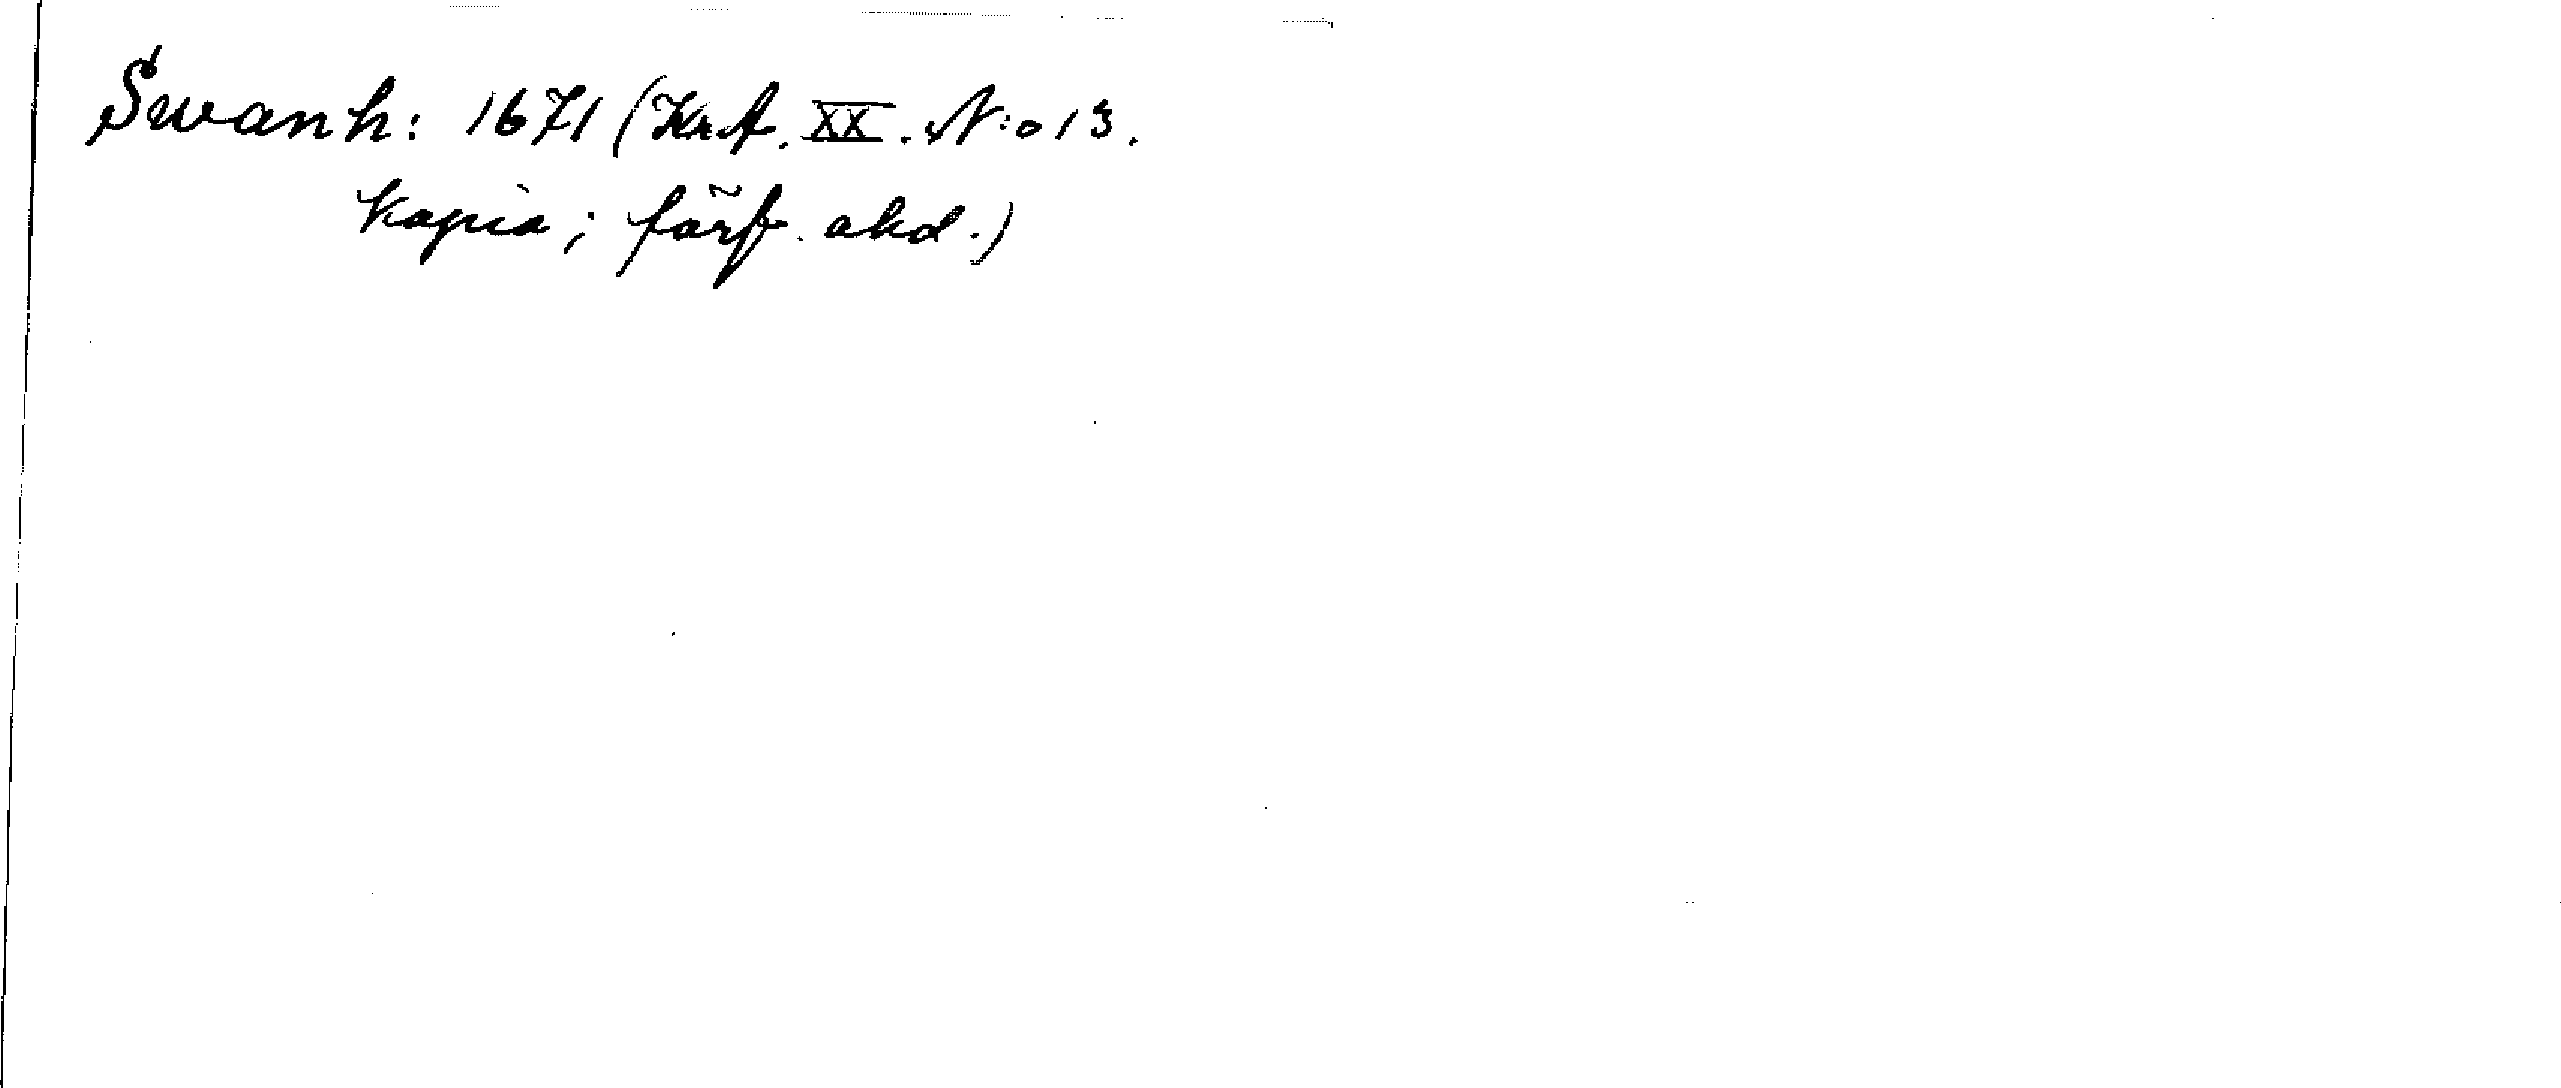 Swanh: 1671 (KrA. XX. N:o 13.
kopia; förf. okd.)